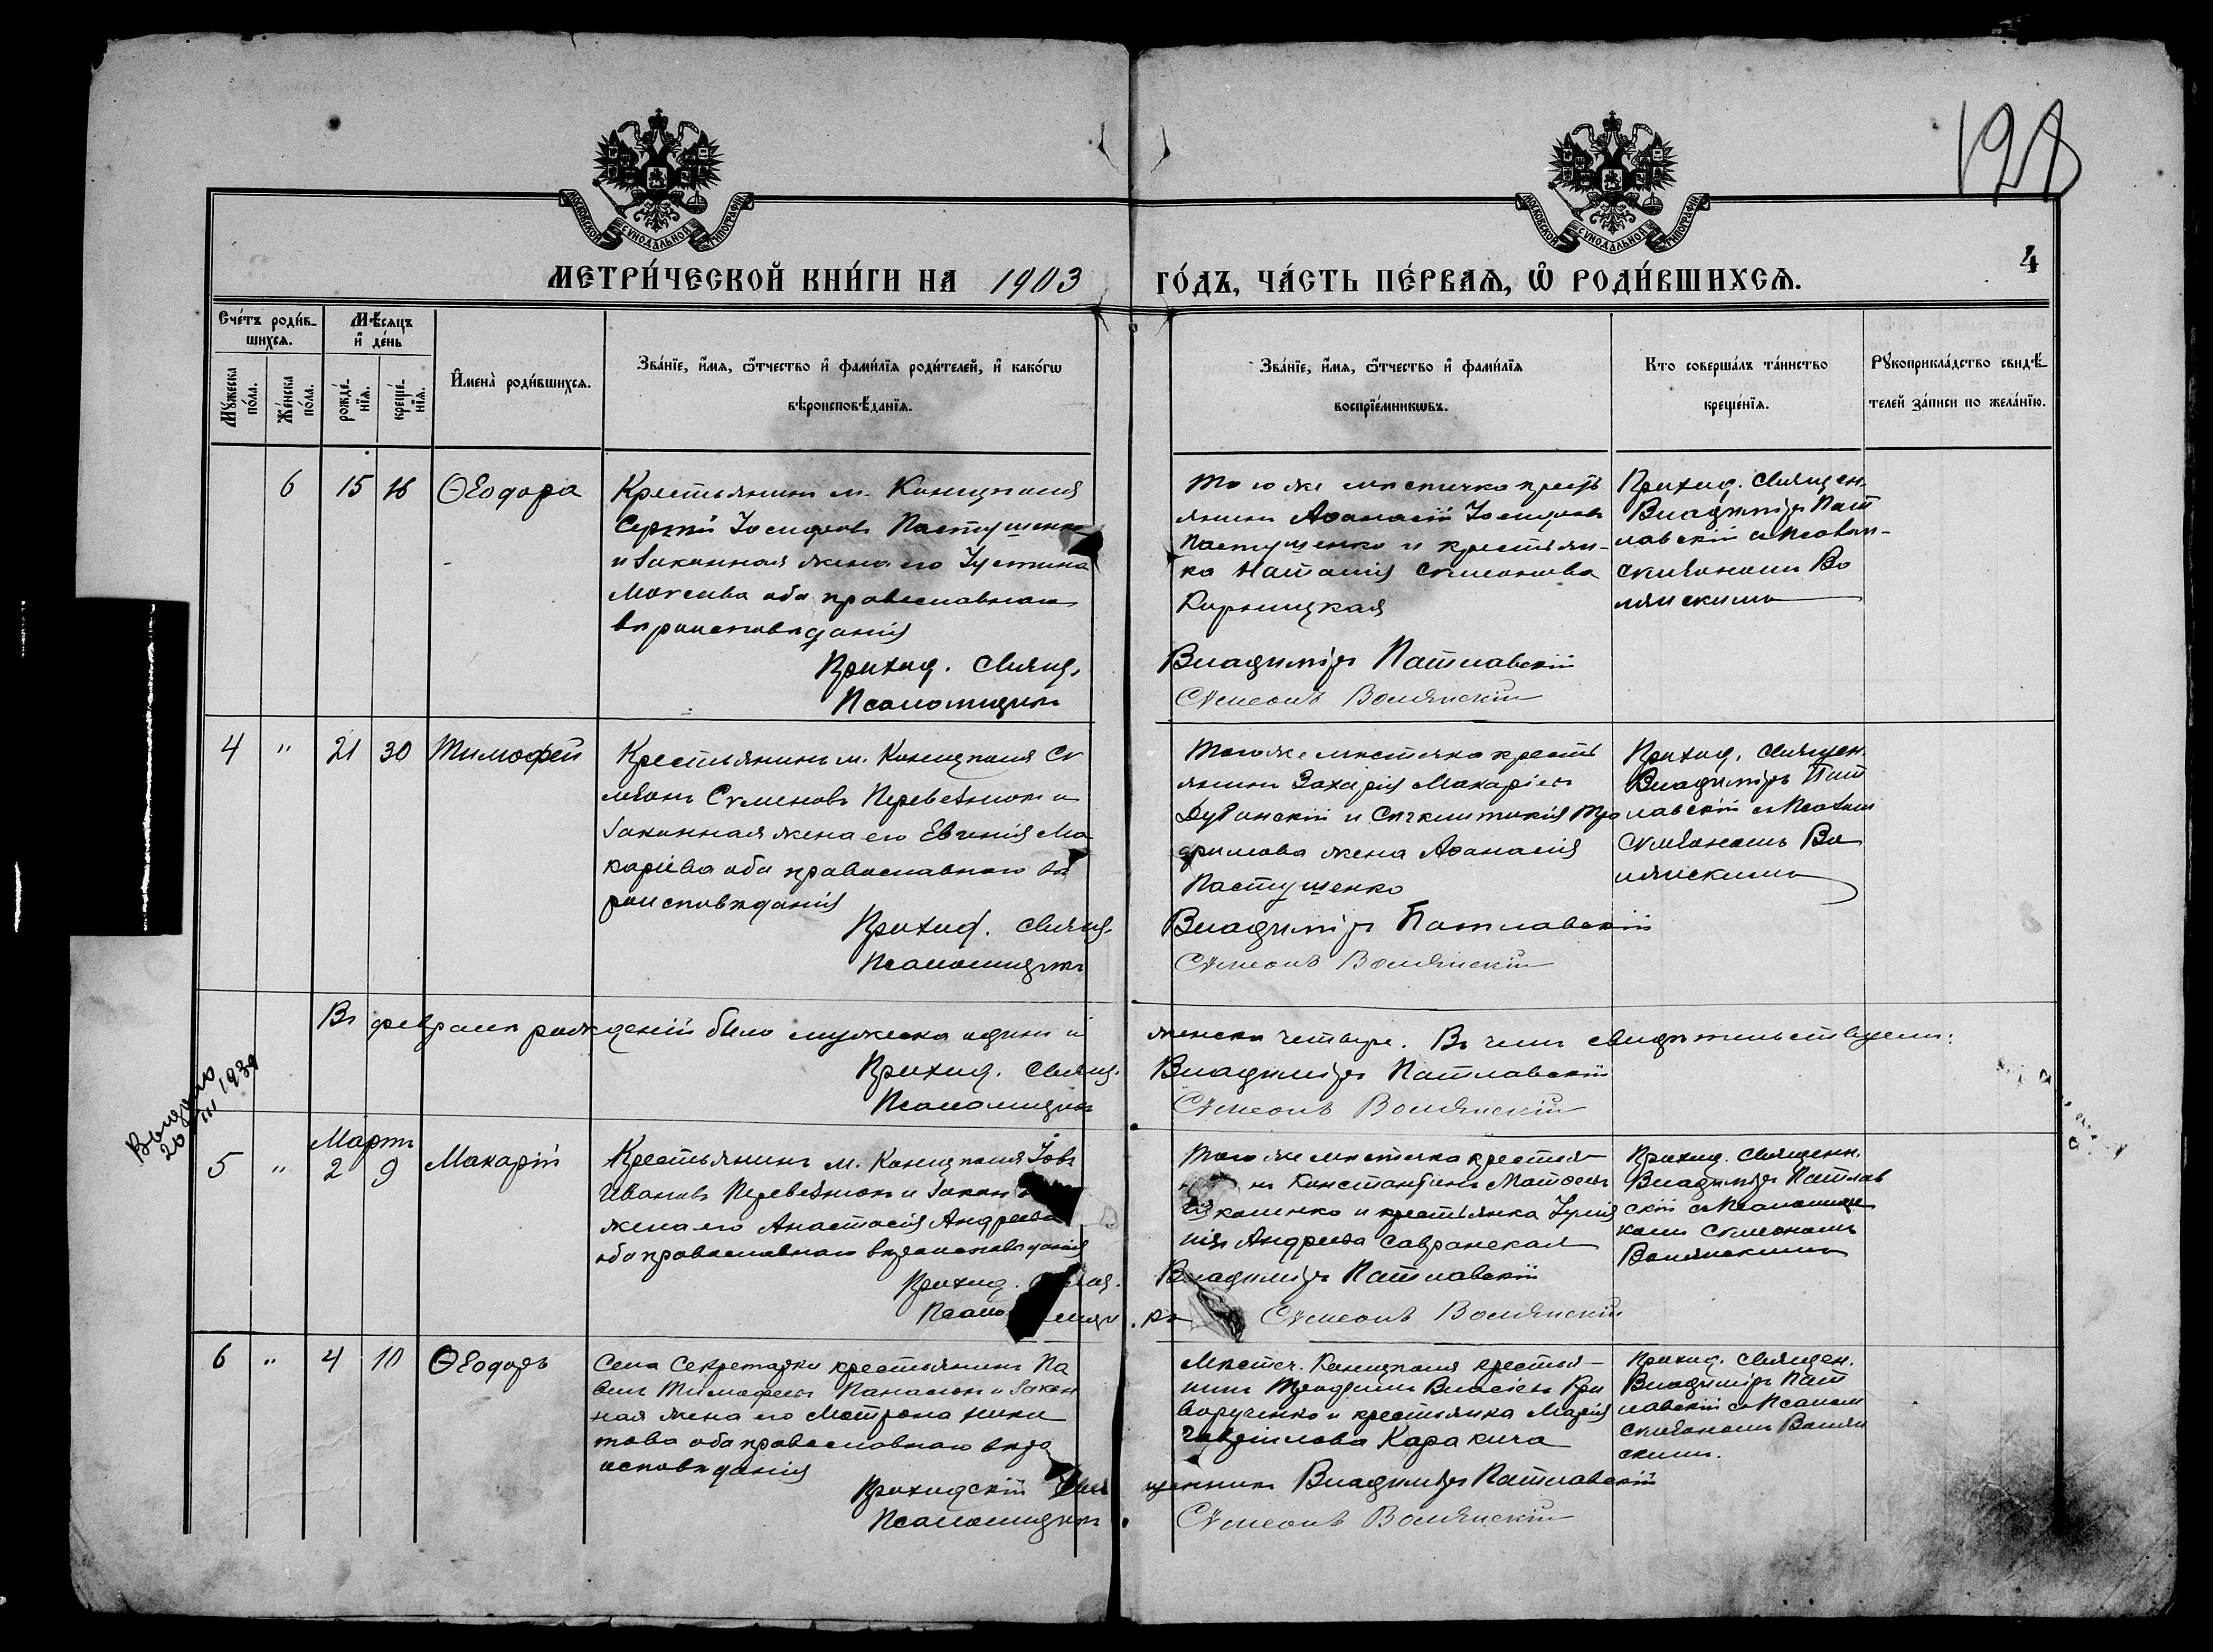 198
4
МОСКОВСКОЙ СѴНОДАЛЬНОЙ ТИПОГРАФІИ
МОСКОВСКОЙ СѴНОДАЛЬНОЙ ТИПОГРАФІИ
МЕТРИ́ЧЕСКОЙ КНИ́ГИ НА 1903 ГО́ДЪ, ЧА́СТЬ ПЕ́РВАѦ, Ѡ҆ РОДИ́ВШИХСѦ.
Сче́тъ роди́в-
шихсѧ.
Мꙋ́жеска по́ла.
Же́нска по́ла.
Мѣ́сѧцъ
и҆ де́нь
рожде́-
нїѧ.
креще́-
нїѧ.
И҆мена̀ роди́вшихсѧ.
Зва́нїе, и҆́мѧ, ѻ҆́тчество и҆ фами́лїѧ роди́телей, и҆ како́гѡ
вѣроисповѣ́данїѧ.
Зва́нїе, и҆́мѧ, ѻ҆́тчество и҆ фами́лїѧ
воспрїе́мникѡвъ.
Кто̀ соверша́лъ та́инство
креще́нїѧ.
Рꙋкоприкла́дство свидѣ́-
телей за́писи по жела́нїю.
6 15 16 Ѳеодора
Крестьянинъ м. Коницполя
Сергій Іосифовъ Пастушенко
и законная жена его Іустина
Моксива оба православнаго
вѣроисповѣданія
Приход. Свящ.
Псаломщикъ
Того же мѣстечка кресть
янинъ Аѳанасій Іосифовъ
Пастушенко и крестьян-
ка Наталія Сѵмеонова
Корницкая
Владиміръ Патлавскій
Сѵмеонъ Волянскій
Приход. Священ.
Владиміръ Пат
лавскій съ Псалом-
Сѵмеономъ Во
лянскимъ
4 " 21 30 Тимофей
Крестьянинъ м. Коницполя Сѵ
меонъ Сѵменовъ Перевезнюкъ и
законная жена его Евгенія Ма
каріева оба православнаго вѣ
роисповѣданія
Приход. Свящ.
Псаломщикъ
Того же мѣстечка кресть
янинъ Захарія Макаріевъ
Дубинскій и Тро
фимова жена Аѳанасія
Пастушенко
Владиміръ Патлавскій
Сѵмеонъ Волянскій
Приход. Священ.
Владиміръ Пат
лавскій съ Псалом
Сѵмеономъ Во
лянскимъ
Въ февралѣ рожденій было мужеска одинъ и женска четверо. Въ чемъ свидѣтельствуемъ:
Приход. Свящ. Владиміръ Патлавскій
Псаломщикъ Сѵмеонъ Волянскій
Выдано
20 III 1939
Мартъ
5 " 2 9 Макарій
Крестьянинъ м. Коницполя Іовъ
Ивановъ Перевезнюкъ и закон
жена его Анастасія Андреева
оба православнаго вѣроисповѣданія
Приход.
Псало мщи
Того же мѣстечка крестья
нъ Константинъ Матѳеевъ
коленко и крестьянка Іулія
Андреева Савранская
Владиміръ Патлавскій
къ Сѵмеонъ Волянскій
Приход. Священн.
Владиміръ Патлав
скій съ Псаломщи
комъ Сѵмеономъ
Волянскимъ
6 " 4 10 Ѳеодоръ
Села Секретарки крестьянинъ Па
велъ Тимофеевъ Панасюкъ и закон
ная жена его Матрона Ники
това оба православнаго вѣро
исповѣданія
Приходскій Свя
Псаломщикъ
Мѣстеч. Коницполя крестья-
нинъ Трофимъ Власіевъ Кри
ворученко и крестьянка Марія
Гавріилова Каракича
щенникъ Владиміръ Патлавскій
Сѵмеонъ Волянскій
Приход. Священ.
Владиміръ Пат
лавскій съ Псалом
Сѵмеономъ Волян
скимъ.